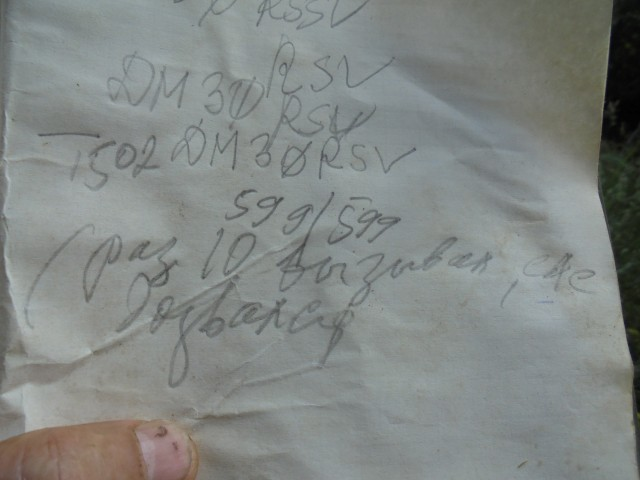 RSSV
DM30 RSV
RSV
T502 DM3ØRSV
599/599
(раз 10 вызывал, еле
дозвался